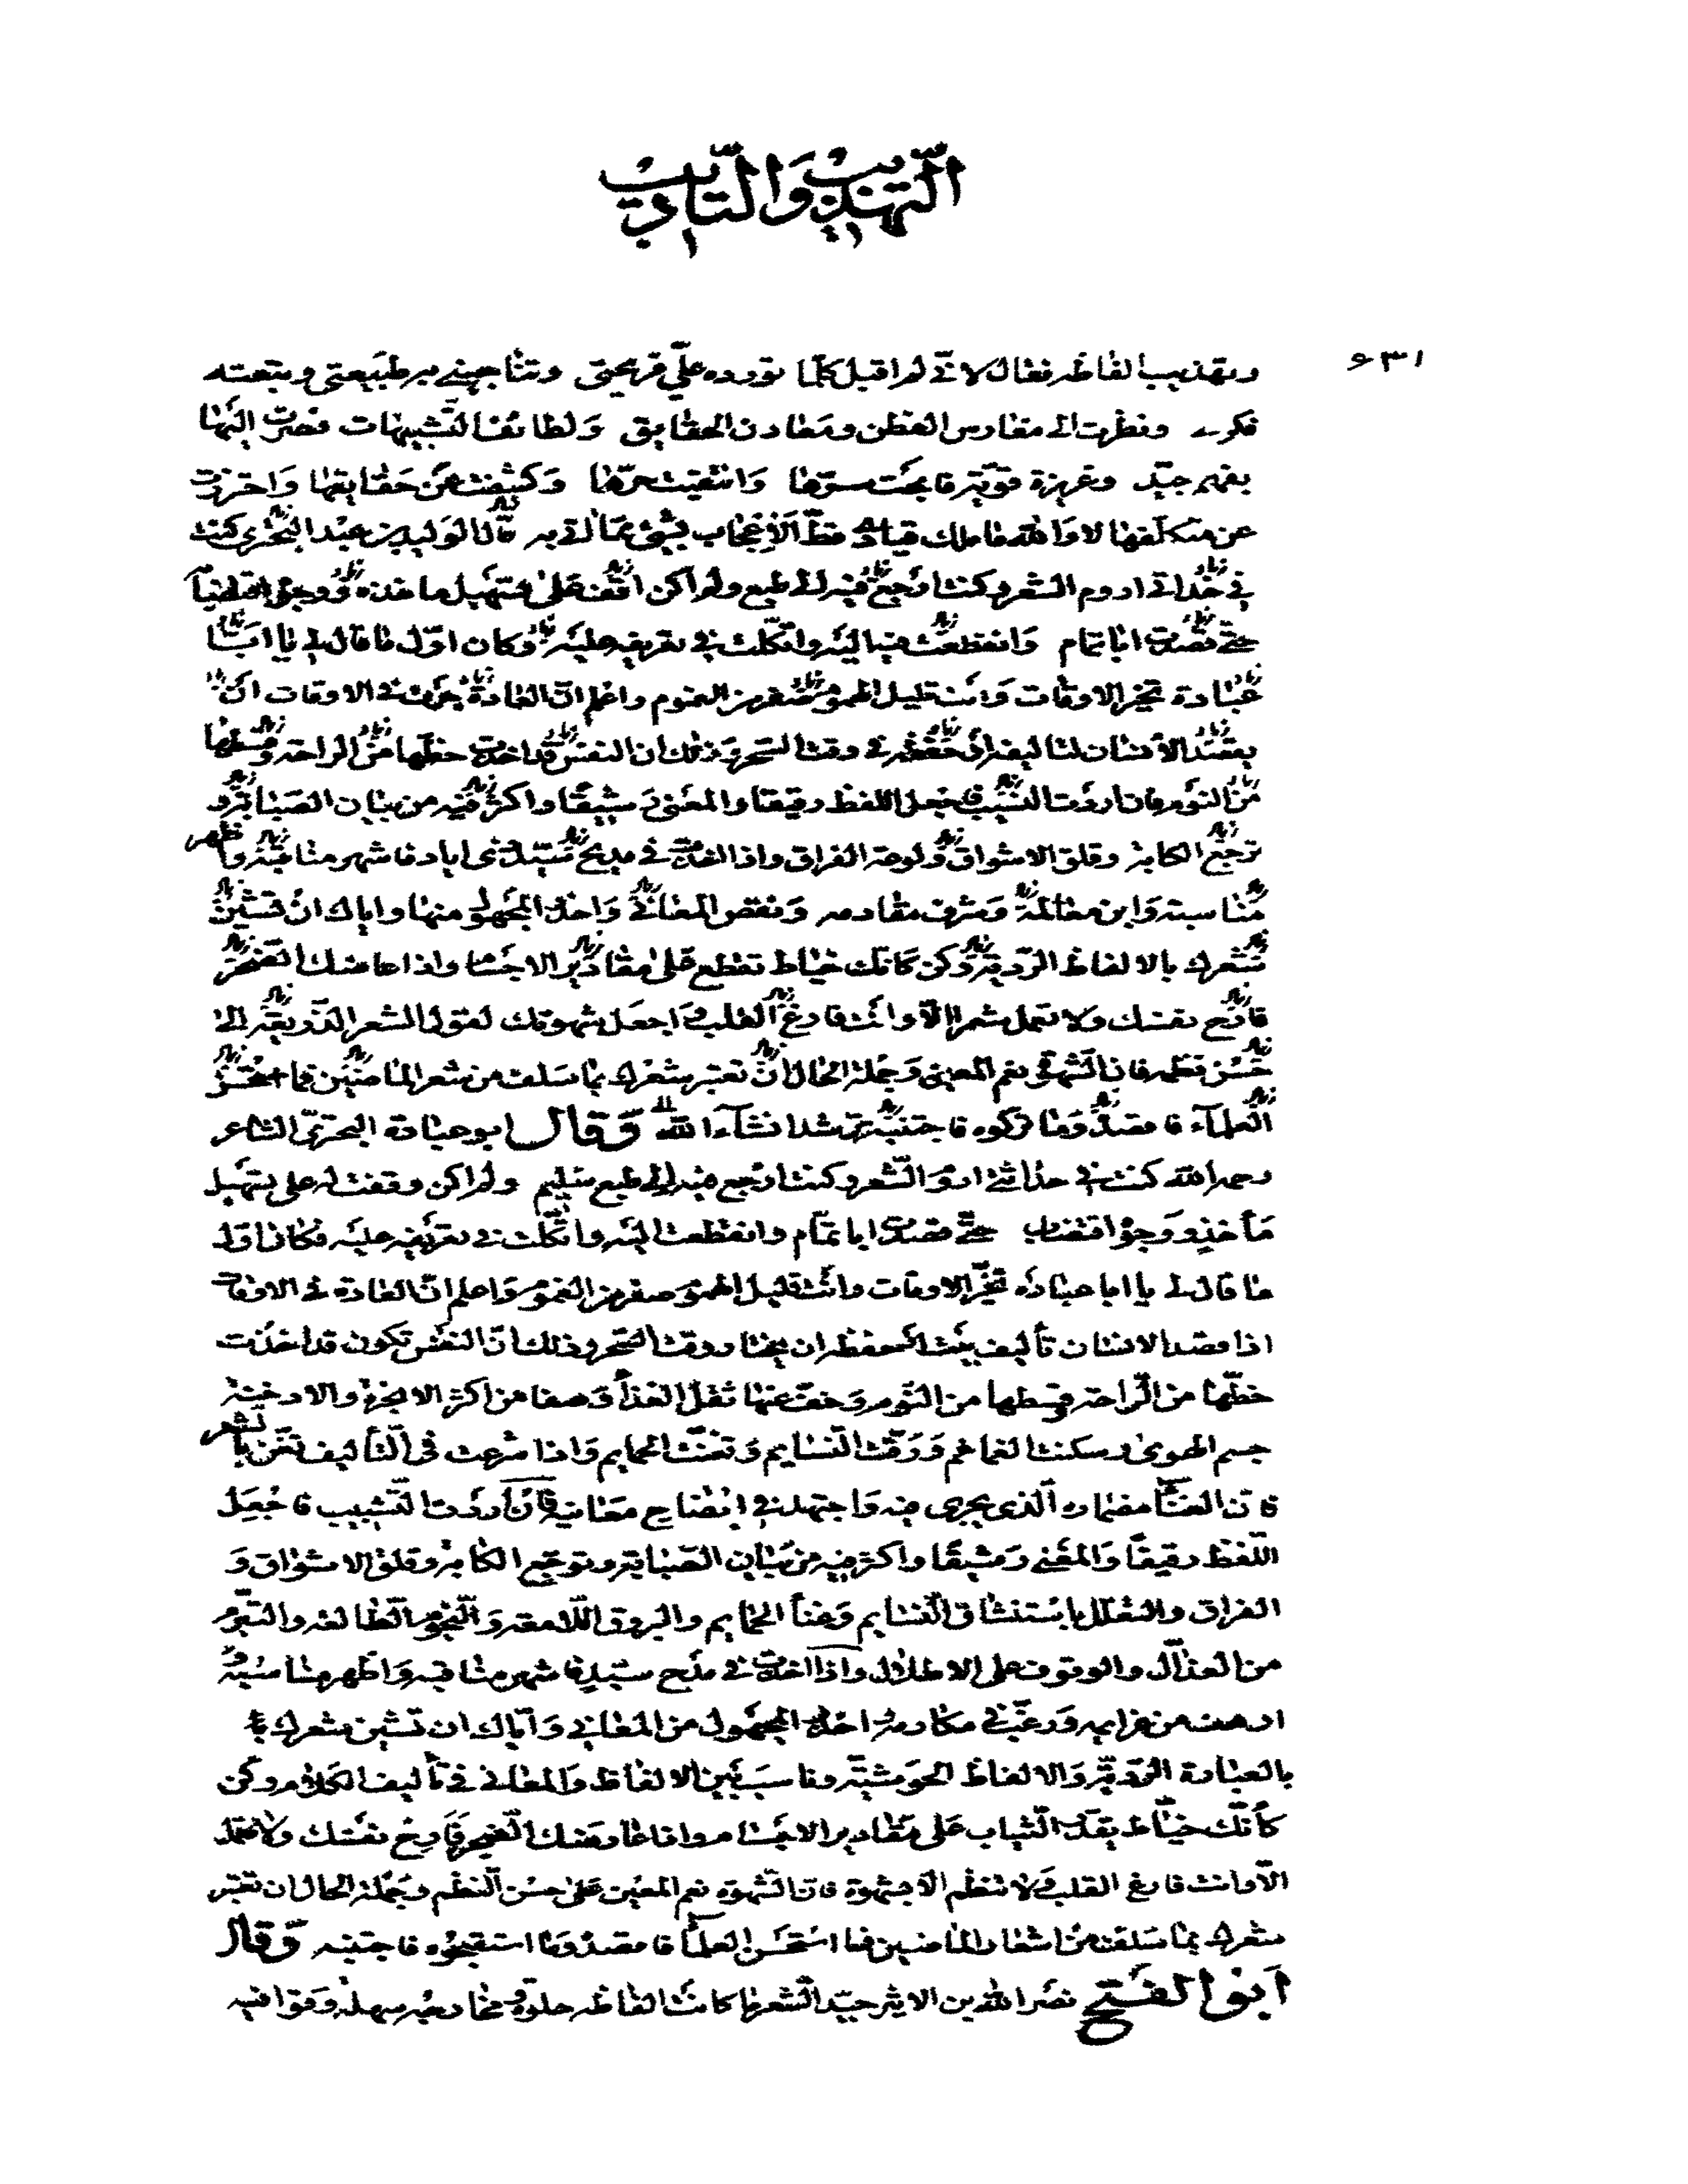 التهذيب والتاديب
١٣٥
وتهذيب الفاظه فقال لاني لم اقبل كلما تورده علي قريحتي وتناجيني به طبيعتي ويبعثه
فكري ونظرت الى مغارس الفطن ومعادن الحقايق ولطائف التشبيهات فصرت اليها
بفهم جيد وغريزة قوية فاحكمت سبرها وانتقيت حرها وكشفت عن حقايقها واحترزت
عن متكلفها لا والله ما ملك قيادي قط الاعجاب بشيء مما اتي به قال الوليد بن عبيد البحتري كنت
في حداثتي اروم الشعر وكنت ارجع فيه الى طبع ولم اكن اقف على تسهيل ماخذه ووجوه اقتضابه
حتى قصدت ابا تمام وانقطعت فيه اليه واتكلت في تعريفه عليه وكان اول ما قال لي يا ابا
عبادة تخير الاوقات وانت قليل الهموم صفر من الغموم واعلم ان العادة جرت في الاوقات ان
يقصد الانسان لتاليف او حفظه في وقت السحر وذلك ان النفس قد اخذت حظها من الراحة وقسطها
من النوم فان اردت النسيب فاجعل اللفظ رقيقا والمعنى رشيقا واكثر فيه من بيان الصبابة و
توجع الكابة وقلق الاشواق ولوعة الفراق واذا اخذت في مديح سيد ذي اياد فاشهر مناقبه واظهر
مناسبه وابن معالمه وشرف مقامه ونقض المعاني واحذر المجهول منها واياك ان تشين
شعرك بالالفاظ الردية وكن كانك خياط تقطع على مقادير الاجسام واذا عارضك الضجر
فارح نفسك ولا تعمل شعرا الا وانت فارغ القلب واجعل شهوتك لقول الشعر الذريعة الى
حسن نظمه فان الشهوة نعم المعين وجملة الحال ان تعتبر شعرك بما سلف من شعر الماضين فما استحسن
العلماء فاقصده وما تركوه فاجتنبه ترشد ان شاء الله وقال ابو عبادة البحتري الشاعر
رحمه الله كنت في حداثتي اروم الشعر وكنت ارجع فيه الى طبع سليم ولم اكن وقفت له على تسهيل
مأخذ ووجوه اقتضاب حتى قصدت ابا تمام وانقطعت اليه واتكلت في تعريفه عليه فكان اول
ما قال لي يا ابا عبادة تخير الاوقات وانت قليل الهموم صفر من الغموم واعلم ان العادة في الاوقات
اذا قصد الانسان تأليف شيء او حفظه ان يختار وقت السحر وذلك ان النفس تكون قد اخذت
حظها من الراحة وقسطها من النوم وخف عنها ثقل الغذاء وصفا من اكثر الابخرة والادخنة
جسم الهوى وسكنت الغماغم ورقت النسايم وتغنت الحمايم واذا شرعت في التأليف تغن بالشعر
فان الغناء مضماره الذي يجري فيه واجتهد في ايضاح معانيه فان اردت التشبيب فاجعل
اللفظ رقيقا والمعنى رشيقا واكثر فيه من بيان الصبابة وتوجع الكابة وقلق الاشواق و
الفراق والتعلل باستنشاق النسايم وغناء الحمايم والبروق اللامعة والنجوم الطالعه والتبرم
من العذال والوقوف على الاطلال واذا اخذت في مدح سيد فاشهر مناقبه واظهر مناسبه و
ارهف من عزايمه ورغب في مكارمه واحذر المجهول من المعاني واياك ان تشين شعرك با
بالعبارة الردية والالفاظ الحوشية وناسب بين الالفاظ والمعاني في تأليف الكلام وكن
كأنك خياط يقدر الثياب على مقادير الاجسام واذا عارضك الضجر فارح نفسك ولا تعمل
الا وانت فارغ القلب ولا تنظم الا بشهوة فان الشهوة نعم المعين على حسن النظم وجملة الحال ان تعتبر
شعرك بما سلف من اشعار الماضين فما استحسن العلماء فاقصده وما استقبحوه فاجتنبه وقال
ابو الفتح نصر الله بن الاثير جيد الشعر ما كانت الفاظه حلوة ومخارجه سهلة وقوافيه